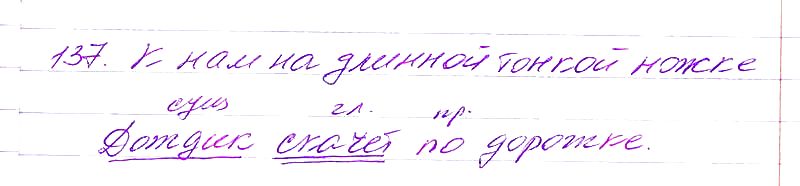 137. К нам на длинной тонкой ножке
сущ гл. пр.
Дождик скачет по дорожке.